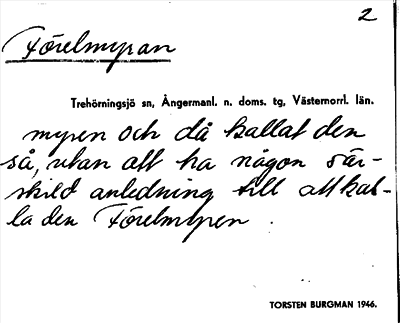 2
Förelmyran
Trehörningsjö sn, Ångermanl. n. doms. tg, Västernorrl. län.
myren och då kallat den
så, utan att ha någon sär-
skild anledning till att kal-
la den Förelmyren.
TORSTEN BURGMAN 1946.